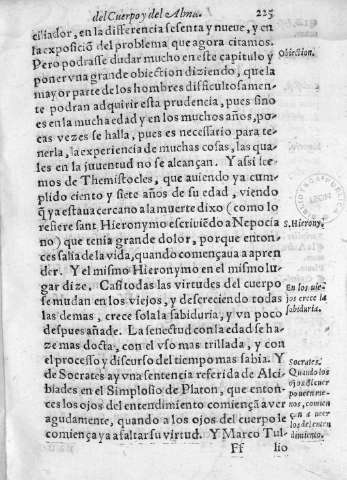 del Cuerpo y del Alma. 225
ciliador, en la differencia sesenta y nueue, y en
la exposiciõ del problema que agora citamos.
Pero podrasse dudar mucho en este capitulo y
poner vna grande obiection diziendo, que la
mayor parte de los hombres difficultosamen-
te podran adquirir esta prudencia, pues sino
es en la mucha edad y en los muchos años, po-
cas vezes se halla, pues es necessario para te-
nerla, la experiencia de muchas cosas, las qua-
les en la juuentud no se alcançan. Y assi lee-
mos de Themistocles, que auiendo ya cum-
plido ciento y siete años de su edad, viendo
q̃ ya estaua cercano a la muerte dixo (como lo
refiere sant Hieronymo escriuiẽdo a Nepocia
no) que tenía grande dolor, porque enton-
ces salia de la vida, quando començaua a apren
der. Y el mismo Hieronymo en el mismo lu-
gar dize. Casi todas las virtudes del cuerpo
se mudan en los viejos, y descreciendo todas
las demas, crece sola la sabiduria, y vn poco
despues añade. La senectud con la edad se ha-
ze mas docta, con el vso mas trillada, y con
el processo y discurso del tiempo mas sabia. Y
de Socrates ay vna sentencia referida de Alci-
biades en el Simplosio de Platon, que enton-
ces los ojos del entendimiento comiençã a ver
agudamente, quando a los ojos del cuerpo le
comiença ya a faltar su virtud. Y Marco Tul-
Ff lio
Obiection.
S. Hierony.
En los vie-
jos crece la
sabiduria.
Socrates.
Quando los
ojos del cuer
po veen me-
nos, comien
çan a veer
los del enten
dimiento.
LEON